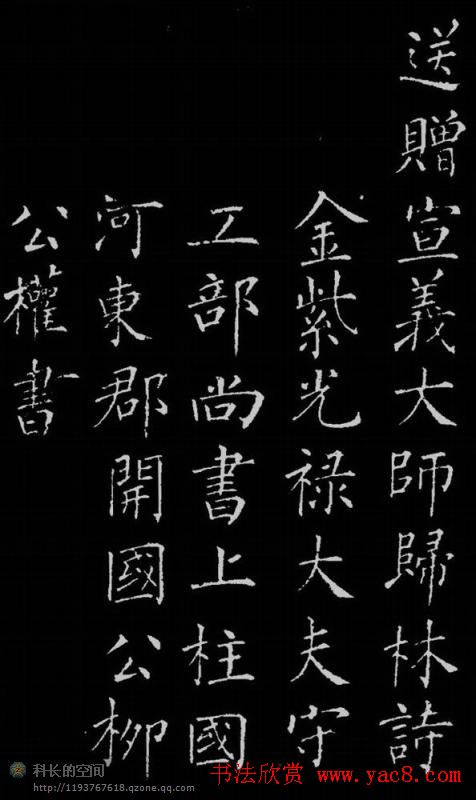 送贈宣義大師歸林詩
金紫光禄大夫守
工部尚書上柱國
河東郡開國公柳
公權書
科长的空间
http://1193767618.qzone.qq.com
书法欣赏 www.yac8.com